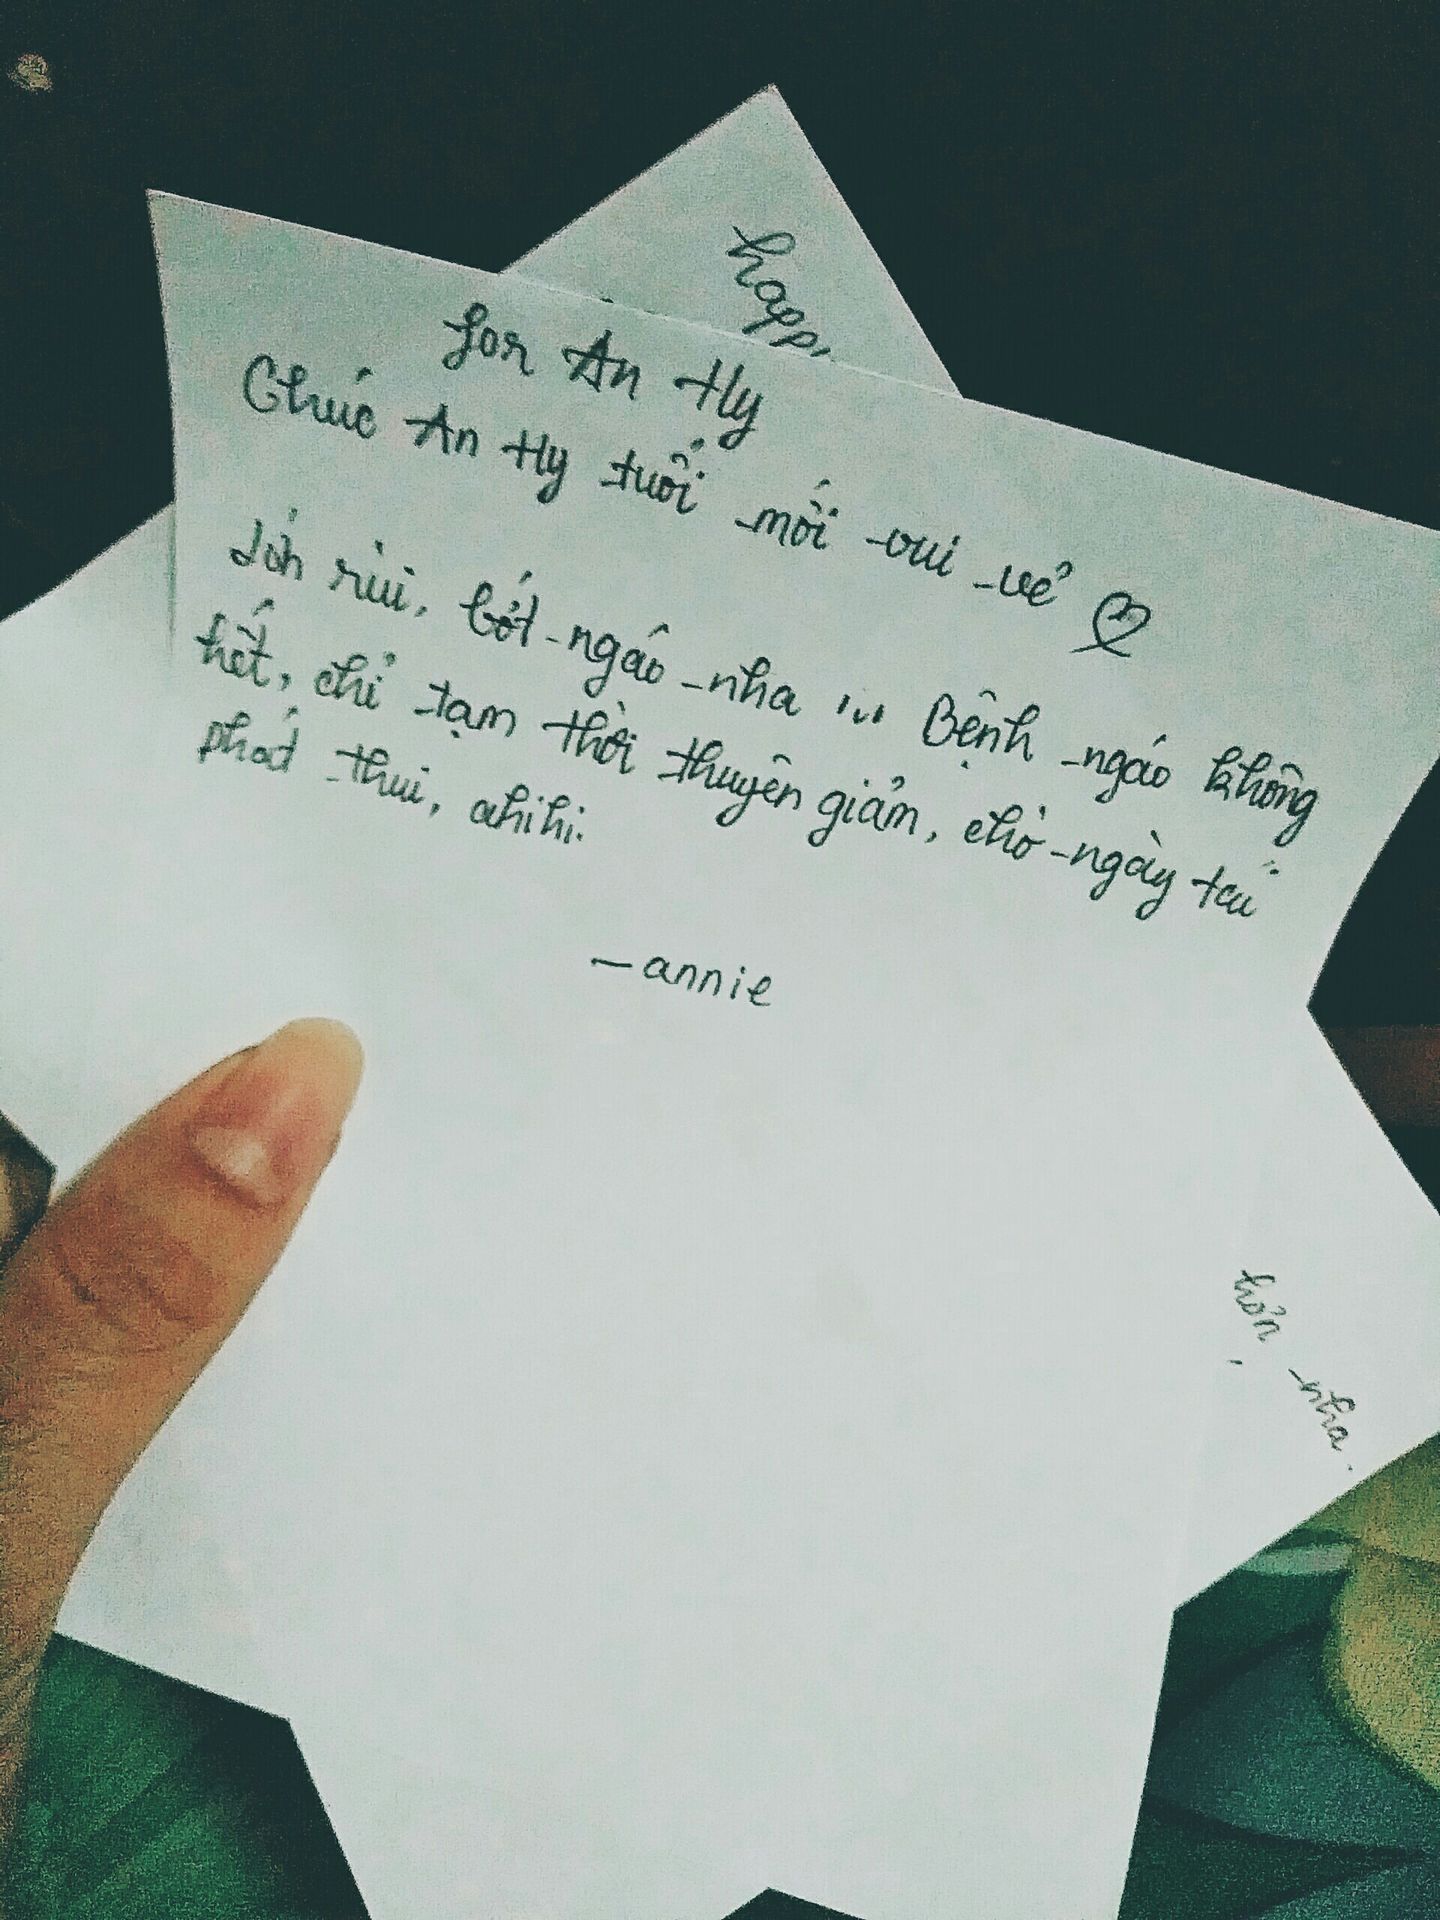 happ
for An Hy
Chúc An Hy tuổi mới vui vẻ
lớn rùi, bớt ngáo nha "' Bệnh ngáo không
hết, chỉ tạm thời thuyên giảm, chờ ngày tái
phát thui, ahihi.
— annie
hơn nha.